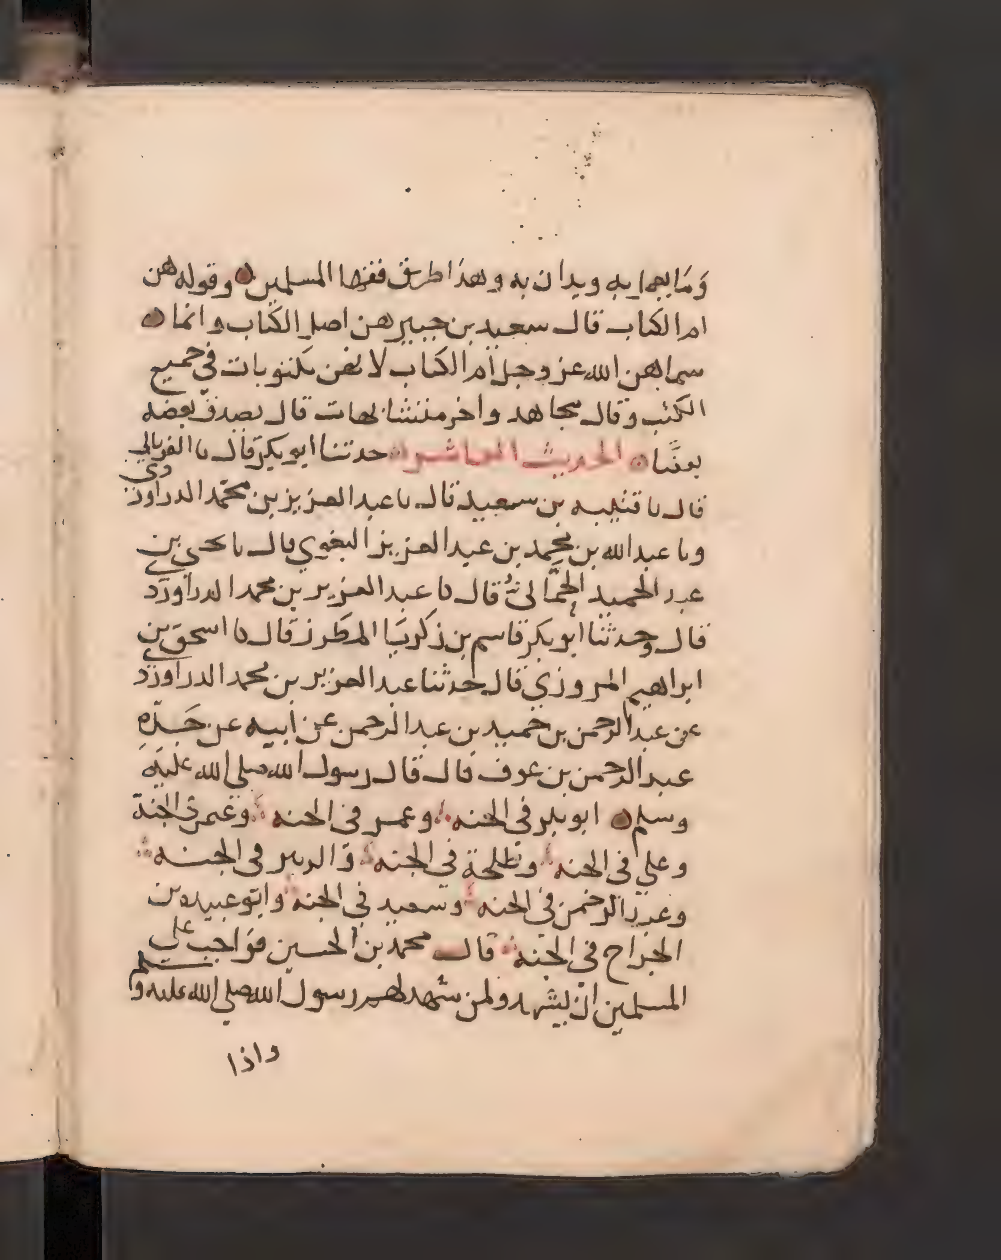 وما يعمل به ويدان به وهذا طريق فقها المسلمين ه وقوله هن
ام الكتاب قال سعيد بن جبير هن اصل الكتاب وانما ه
سماهن الله عز وجل أم الكتاب لانهن مكتوبات في جميع
الكتب وقال مجاهد واخر متشابهات قال يصدق بعضه
بعضا ه الحديث العاشر ه حدثنا ابو بكر قال نا الفريابي
قال نا قتيبه بن سعيد قال نا عبد العزيز بن محمد الدراوردي
ونا عبد الله بن محمد بن عبد العزيز البغوي قال نا يحيى بن
عبد الحميد الحماني قال نا عبد العزيز بن محمد الدراورد
قال وحدثنا ابو بكر قاسم بن زكريا المطرز قال نا اسحق بن
ابراهيم المروزي قال حدثنا عبد العزيز بن محمد الدراورد
عن عبد الرحمن بن حميد بن عبد الرحمن عن أبيه عن جده
عبد الرحمن بن عوف قال قال رسول الله صلى الله عليه
وسلم ه ابو بكر في الجنه وعمر في الجنه وعثمن في الجنة
وعلي في الجنه وطلحة في الجنه والزبير في الجنه
وعبد الرحمن في الجنه وسعيد في الجنه وابو عبيده بن
الجراح في الجنه قال محمد بن الحسين فواجب على
المسلمين ان يشهدو لمن شهد لهم رسول الله صلى الله عليه وسلم
واذا